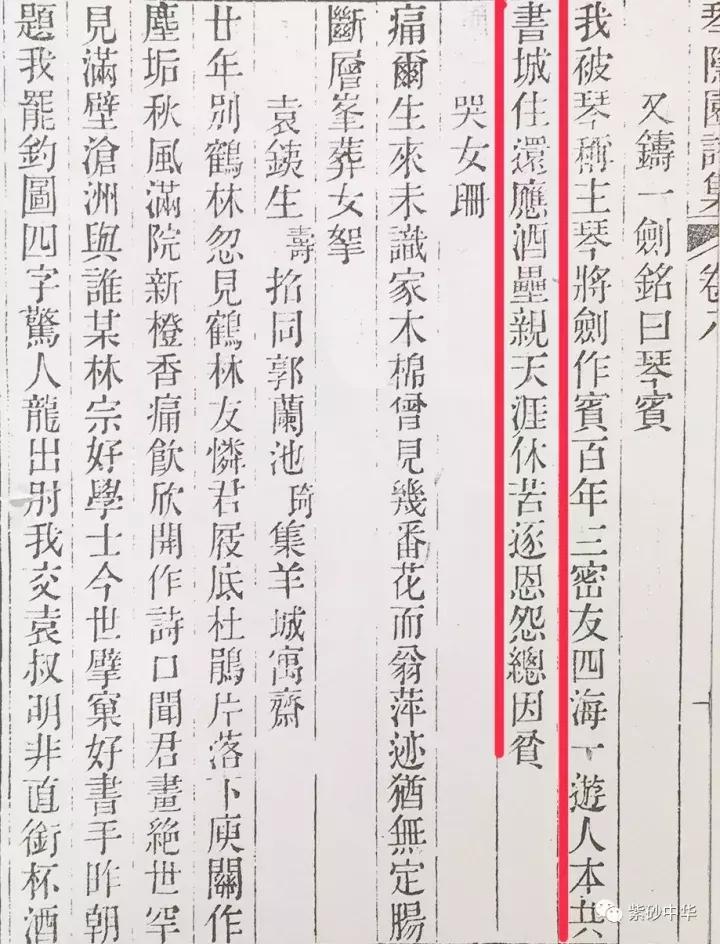 琴隱園詩集 卷八
又鑄一劍銘曰琴賓
我被琴稱主琴將劍作賓百年三密友四海一遊人本共
書城住還應酒壘親天涯休苦逐恩怨總因貧
哭女珊
痛爾生來未識家木棉曾見幾番花而翁萍迹猶無定腸
斷層峯葬女挐
袁銕生壽招同郭蘭池琦集羊城寓齋
廿年別鶴林忽見鶴林友憐君屐底杜鵑片落下庾關作
塵垢秋風滿院新橙香痛飲欣開作詩口聞君畫絕世罕
見滿壁滄洲與誰某林宗好學士今世擘窠好書手昨朝
題我罷釣圖四字驚人龍出肘我交袁叔明非直銜杯酒
紫砂中华